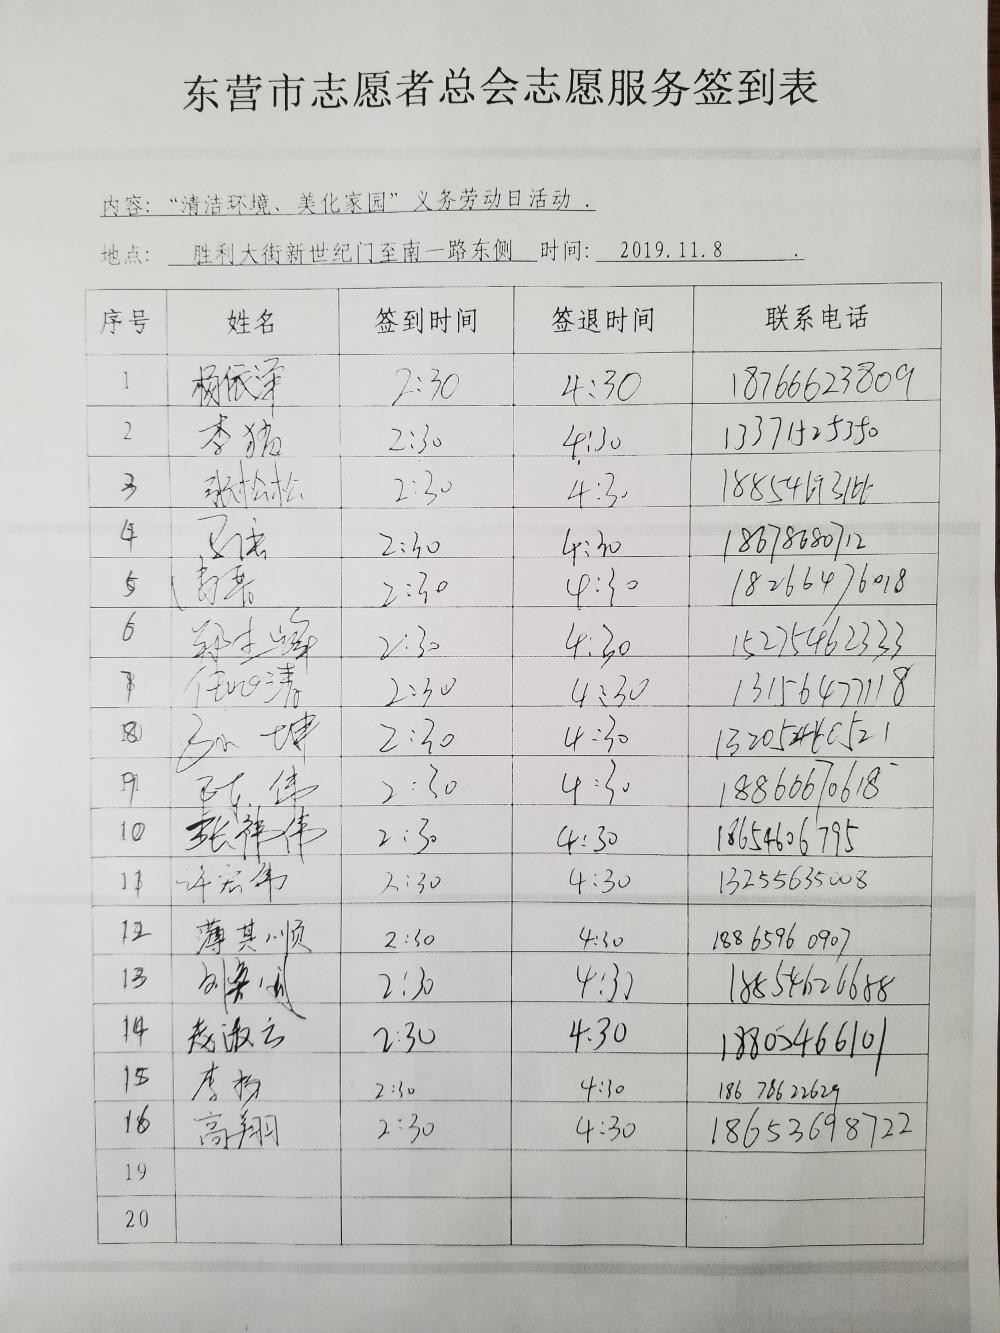 东营市志愿者总会志愿服务签到表
内容: “清洁环境、美化家园”义务劳动日活动 .
地点: 胜利大街新世纪门至南一路东侧 时间: 2019.11.8 .
序号 姓名 签到时间 签退时间 联系电话
1 杨依泽 2:30 4:30 18766623809
2 李 2:30 4:30 13371525350
3 张松松 2:30 4:30
4 2:30 4:30 18678680712
5 2:30 4:30 18266476018
6 2:30 4:30 15275462333
7 2:30 4:30 13156477118
8 坤 2:30 4:30
9 伟 2:30 4:30 18860670618
10 张祥伟 2:30 4:30 18654606795
11 许宏伟 2:30 4:30 13255635008
12 薄其顺 2:30 4:30 188 6596 0907
13 2:30 4:30 18854626688
14 2:30 4:30 18805466101
15 李杨 2:30 4:30 186 78622629
16 高翔 2:30 4:30 18653698722
19
20